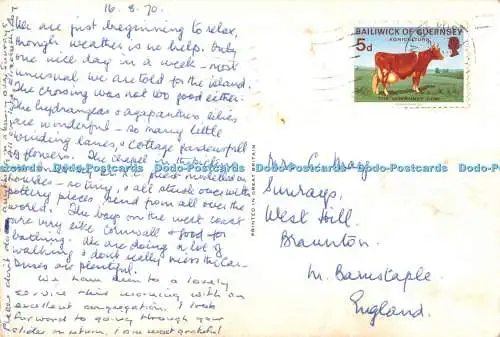 16.8.70.
We are just beginning to relax,
though weather is no help. Only
one nice day in a week – most
unusual we are told for the island.
The crossing was not too good either.
The hydrangeas & agapanthus lilies
are wonderful – so many little
winding lanes, & cottage gardens full
of flowers. The chapel on the back
R.C. priest modelled on
Lourdes – so tiny, & all stuck over with
pottery pieces, send from all over the
world. The bays on the west coast
are very like Cornwall & good for
bathing. We are doing a lot of
walking & don't really miss the car –
buses are plentiful.
We have been to a lovely
service this morning with an
excellent congregation. I look
forward to going through your
slides on return. I am most grateful
Please don't
BAILIWICK OF GUERNSEY
AGRICULTURE
5d
THE GUERNSEY COW
PRINTED IN GREAT BRITAIN
Mrs C.
Sunrays,
West Hill,
Braunton,
Nr. Barnstaple,
England.
Dodo-Postcards Dodo-Postcards Dodo-Postcards Dodo-Postcards Dodo-Postcards